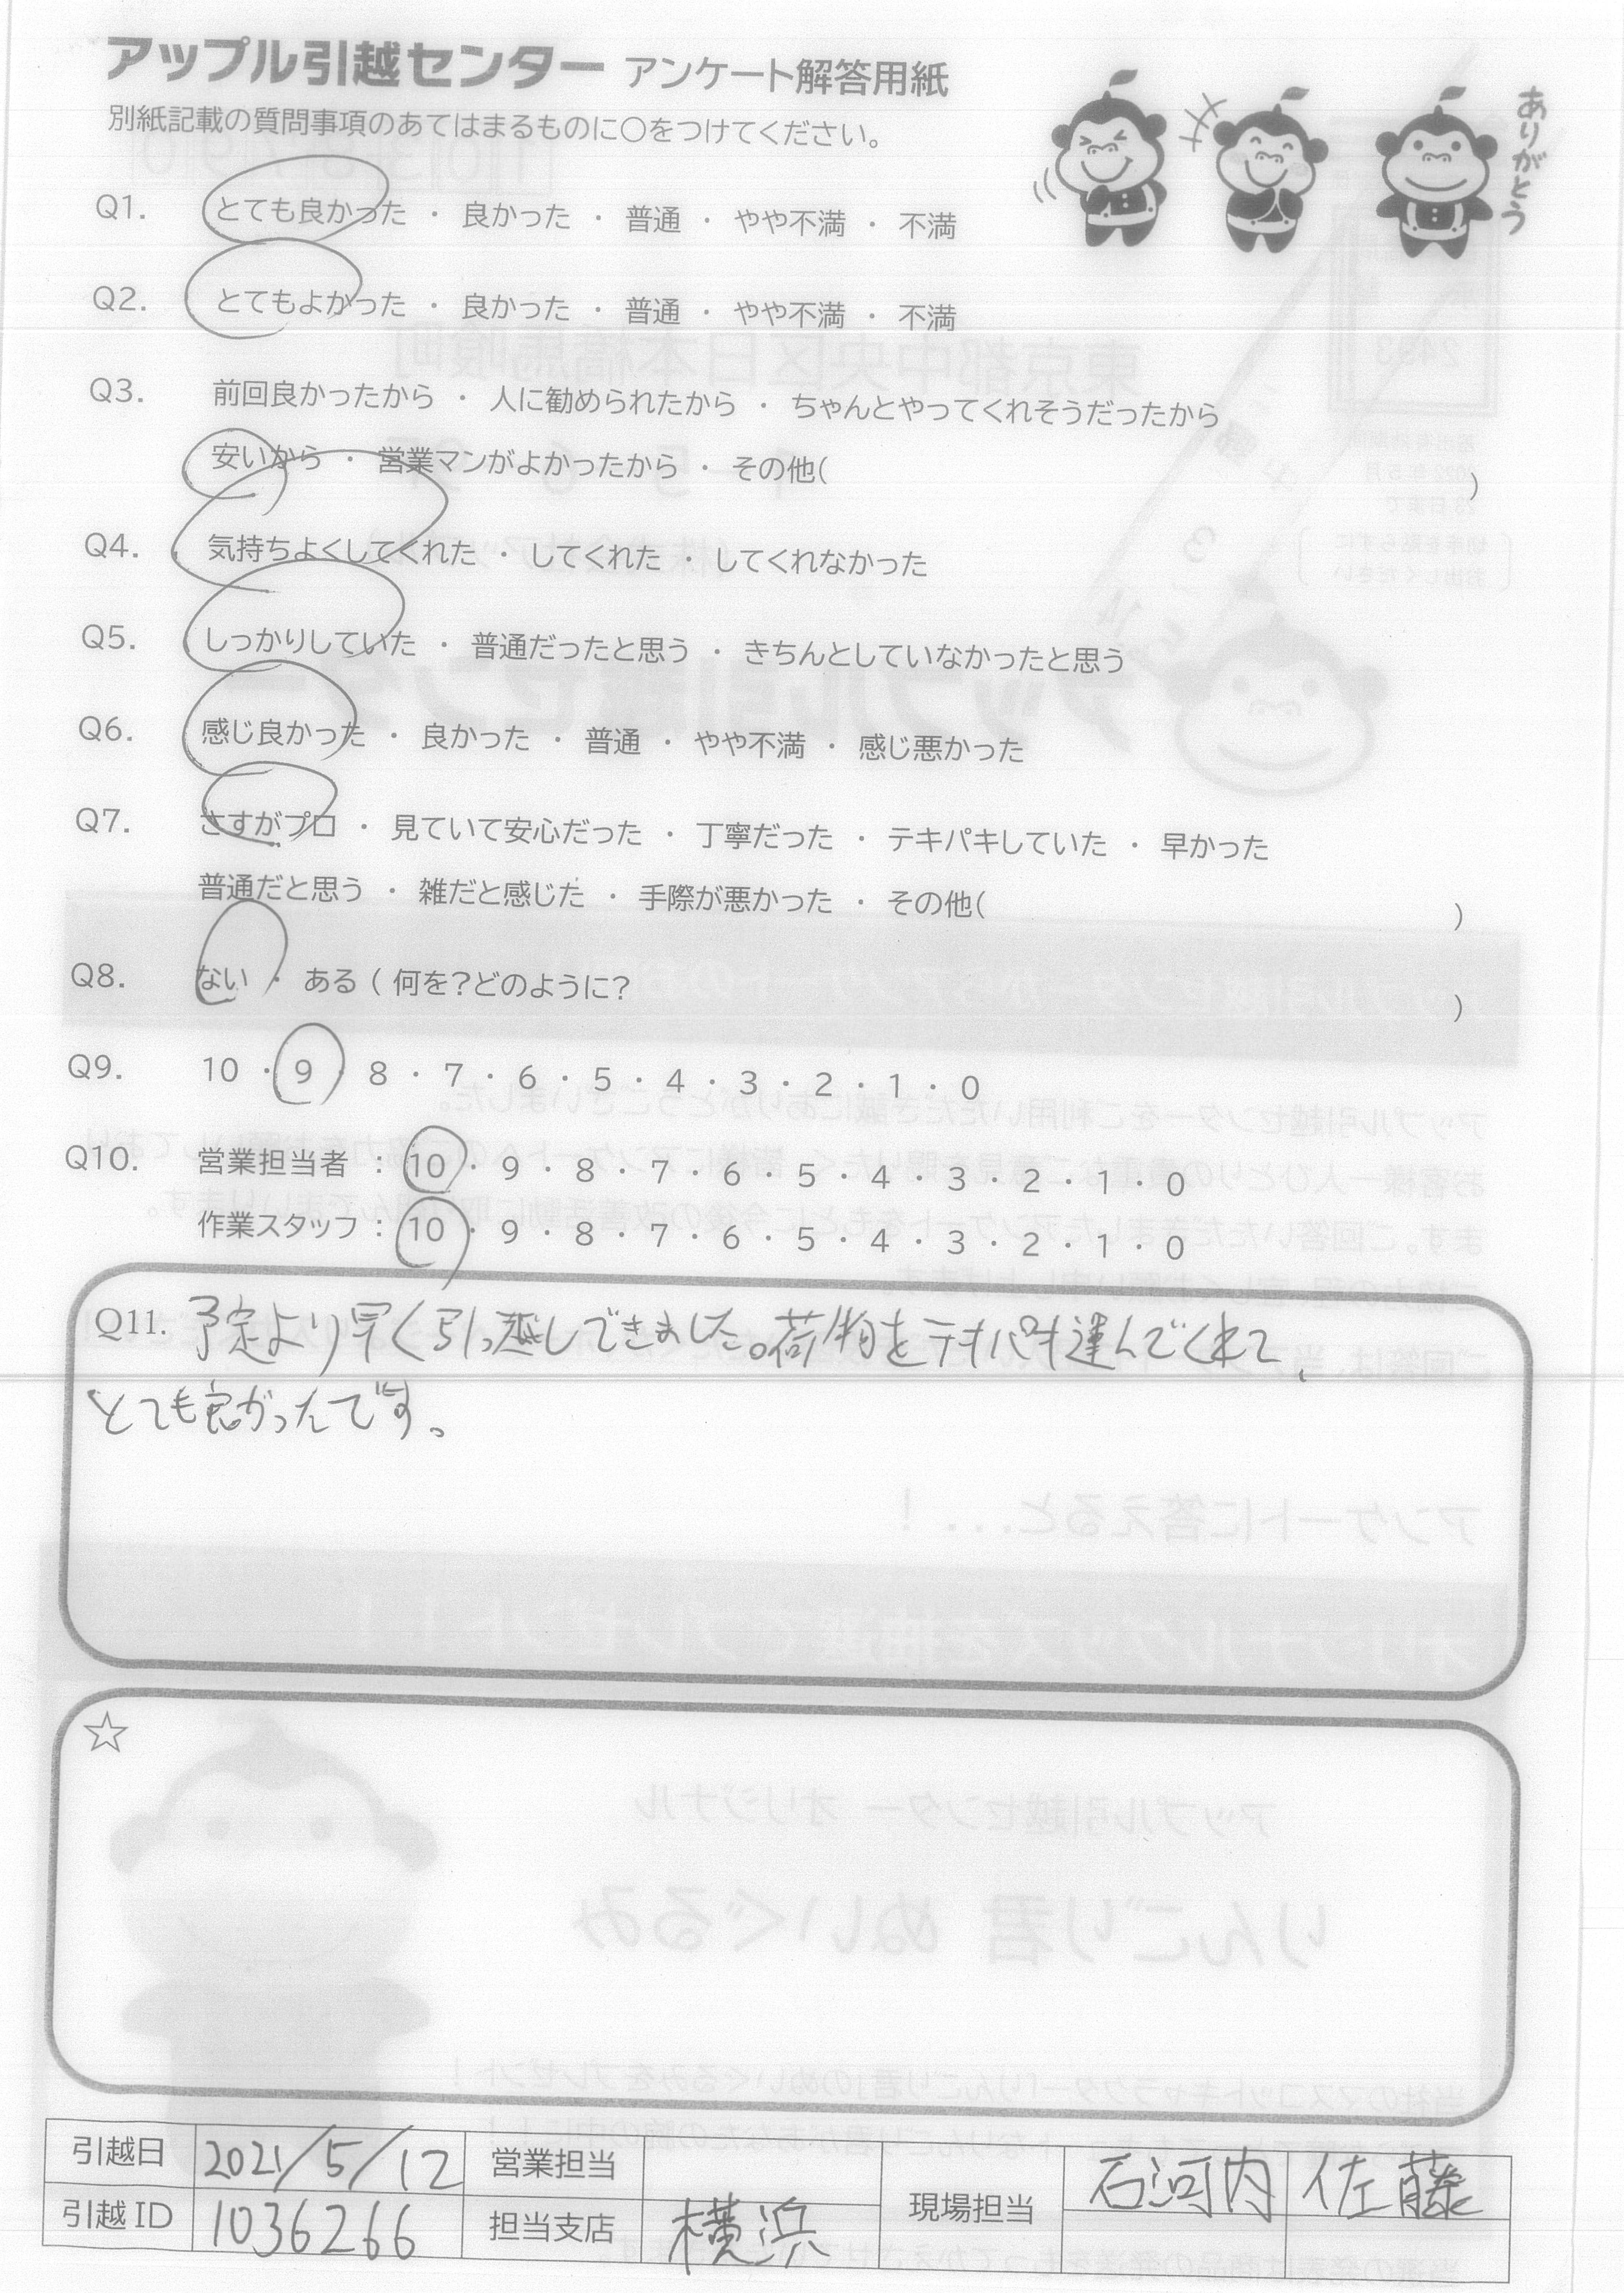 アップル引越センター アンケート解答用紙
別紙記載の質問事項のあてはまるものに○をつけてください。
ありがとう
Q1. とても良かった ・ 良かった ・ 普通 ・ やや不満 ・ 不満
Q2. とてもよかった ・ 良かった ・ 普通 ・ やや不満 ・ 不満
Q3. 前回良かったから ・ 人に勧められたから ・ ちゃんとやってくれそうだったから
安いから ・ 営業マンがよかったから ・ その他( )
Q4. 気持ちよくしてくれた ・ してくれた ・ してくれなかった
Q5. しっかりしていた ・ 普通だったと思う ・ きちんとしていなかったと思う
Q6. 感じ良かった ・ 良かった ・ 普通 ・ やや不満 ・ 感じ悪かった
Q7. さすがプロ ・ 見ていて安心だった ・ 丁寧だった ・ テキパキしていた ・ 早かった
普通だと思う ・ 雑だと感じた ・ 手際が悪かった ・ その他( )
Q8. ない ・ ある ( 何を?どのように? )
Q9. 10 ・ 9 ・ 8 ・ 7 ・ 6 ・ 5 ・ 4 ・ 3 ・ 2 ・ 1 ・ 0
Q10. 営業担当者 : 10 ・ 9 ・ 8 ・ 7 ・ 6 ・ 5 ・ 4 ・ 3 ・ 2 ・ 1 ・ 0
作業スタッフ : 10 ・ 9 ・ 8 ・ 7 ・ 6 ・ 5 ・ 4 ・ 3 ・ 2 ・ 1 ・ 0
Q11. 予定より早く引っ越しできました。荷物をテキパキ運んでくれて、
とても良かったです。
☆
引越日 2021/5/12 営業担当 現場担当 石河内 佐藤
引越ID 1036266 担当支店 横浜